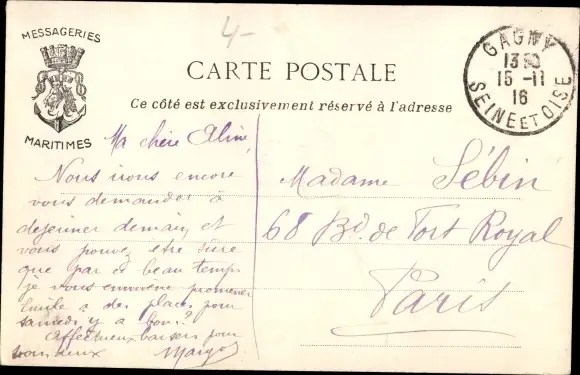 4-
MESSAGERIES
MARITIMES
CARTE POSTALE
Ce côté est exclusivement réservé à l'adresse
GAGNY
13 30
15 -11
16
SEINE ET OISE
Ma chère Aline,
Nous irons encore
vous demander à
dejeuner demain et
vous pouvez etre sure
que par ce beau temps
je vous emmène promener
Emile a des places pour
samedi y a bon?
Affectueux baisers pour
vous deux Margot
Madame Sébin
68 Bd. de Port Royal
Paris